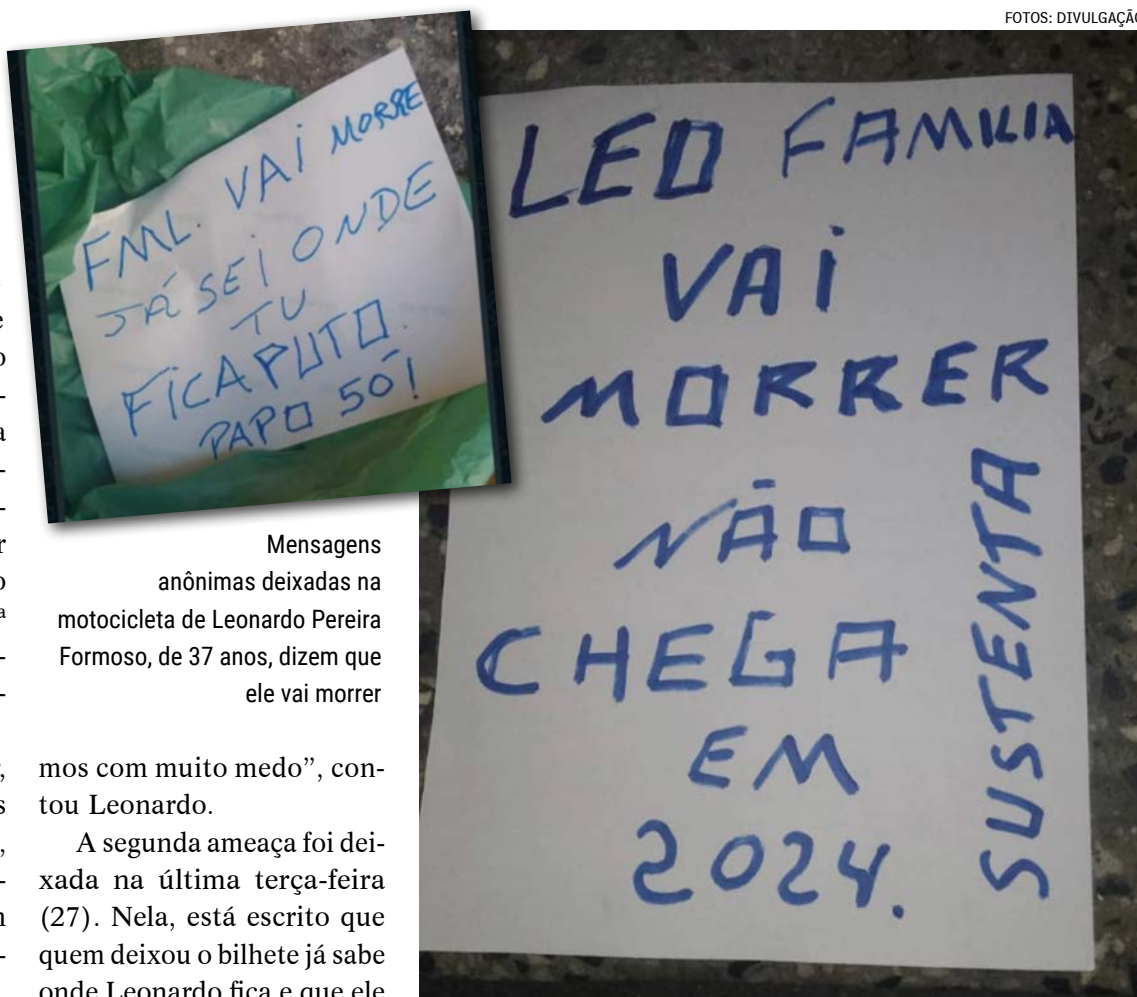 FOTOS: DIVULGAÇÃO
FML. VAI MORRE
JÁ SEI ONDE
TU
FICA PUTO.
PAPO 50!
LEO FAMILIA
VAI
MORRER
NÃO
CHEGA
EM
2024.
SUSTENTA
Mensagens
anônimas deixadas na
motocicleta de Leonardo Pereira
Formoso, de 37 anos, dizem que
ele vai morrer
mos com muito medo”, con-
tou Leonardo.
A segunda ameaça foi dei-
xada na última terça-feira
(27). Nela, está escrito que
quem deixou o bilhete já sabe
onde Leonardo fica e que ele